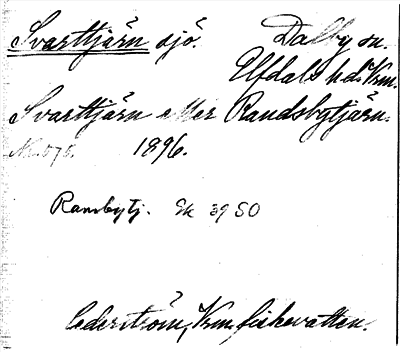 Svarttjärn sjö. Dalby sn.
Elfdals hd. Vrm.
Svarttjärn eller Randsbytjärn.
1896.
Ransbytj. Ek 39 SO
Cederström, Vrm. fiskevatten.